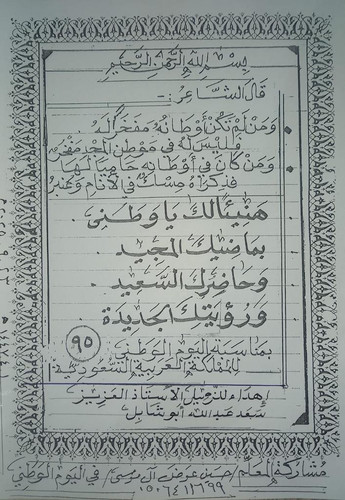 بسم الله الرحمن الرحيم
قال الشاعر :-
ومن لم تكن أوطانه مفخرًا له
فليس له في موطن المجد مفخر
ومن كان في أوطانه حاميًا لها
فذكراه مسك في الأنام وعنبر
هنيئًا لك يا وطني
بماضيك المجيد
وحاضرك السعيد
ورؤيتك الجديدة
بمناسبة اليوم الوطني ٩٥
للمملكة العربية السعودية
إهداء للزميل الأستاذ العزيز
سعد عبدالله أبو شابل
مشاركة المعلم / حسن عوض آل موسى / في اليوم الوطني